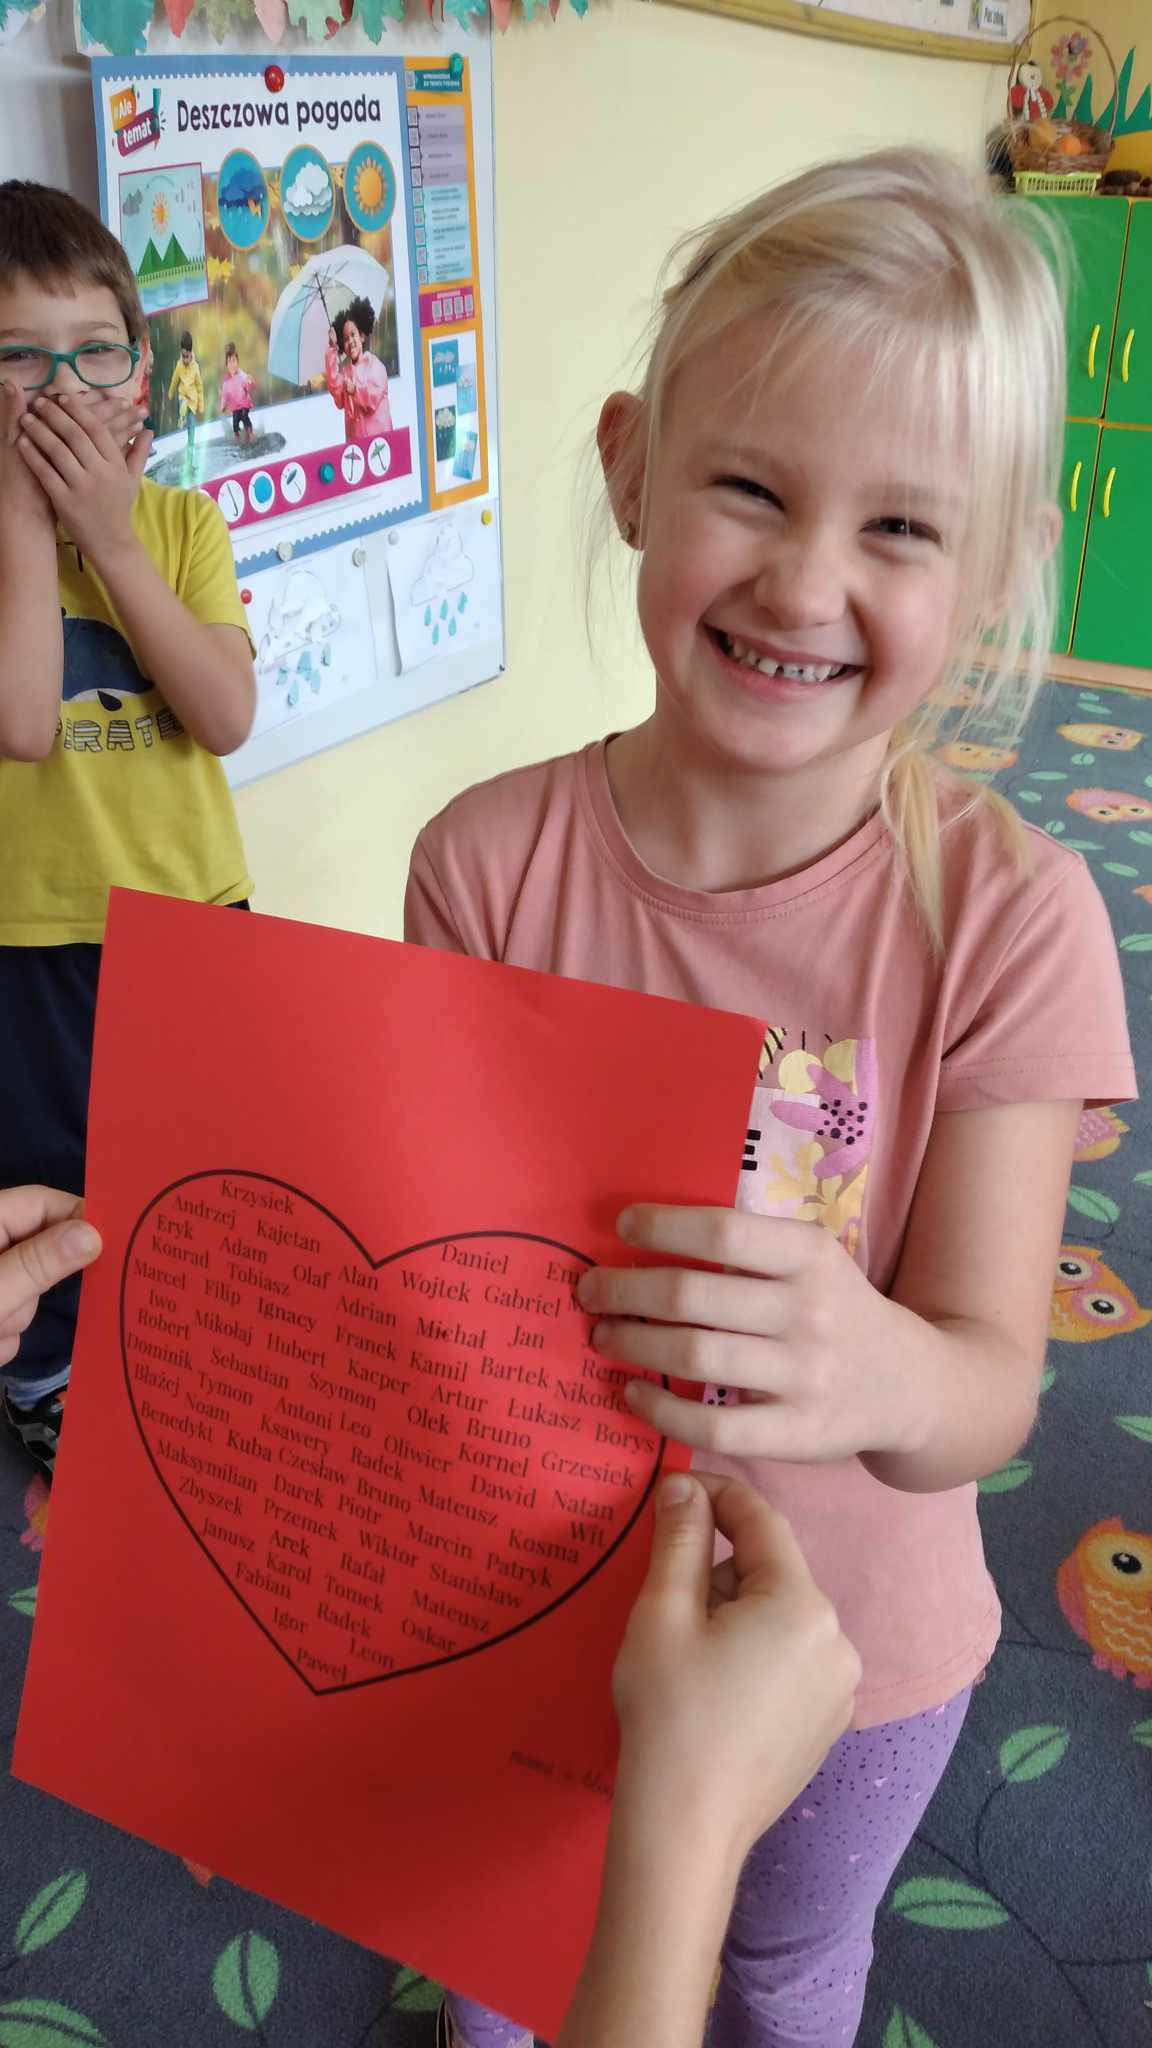 #Ale
temat!
Deszczowa pogoda
PIRATE
E
Krzysiek
Andrzej Kajetan
Eryk Adam Olaf Alan Wojtek Gabriel
Daniel
Konrad Tobiasz Adrian Michał Jan
Marcel Filip Ignacy Franek Kamil Bartek Nikode
Iwo Mikołaj Hubert Kacper Artur Łukasz Borys
Robert Sebastian Szymon Olek Bruno Grzesiek
Dominik Tymon Antoni Leo Oliwier Kornel
Błażej Noam Ksawery Radek Dawid Natan
Benedykt Kuba Czesław Bruno Mateusz Kosma Wit
Maksymilian Darek Piotr Marcin Patryk
Zbyszek Przemek Wiktor Stanisław
Janusz Arek Rafał Mateusz
Karol Tomek Oskar
Fabian Radek
Igor Leon
Paweł